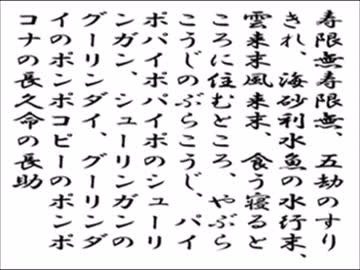 寿限無寿限無、五劫のすり
きれ、海砂利水魚の水行末、
雲来末風来末、食う寝ると
ころに住むところ、やぶら
こうじのぶらこうじ、パイ
ポパイポパイポのシューリ
ンガン、シューリンガンの
グーリンダイ、グーリンダ
イのポンポコピーのポンポ
コナの長久命の長助